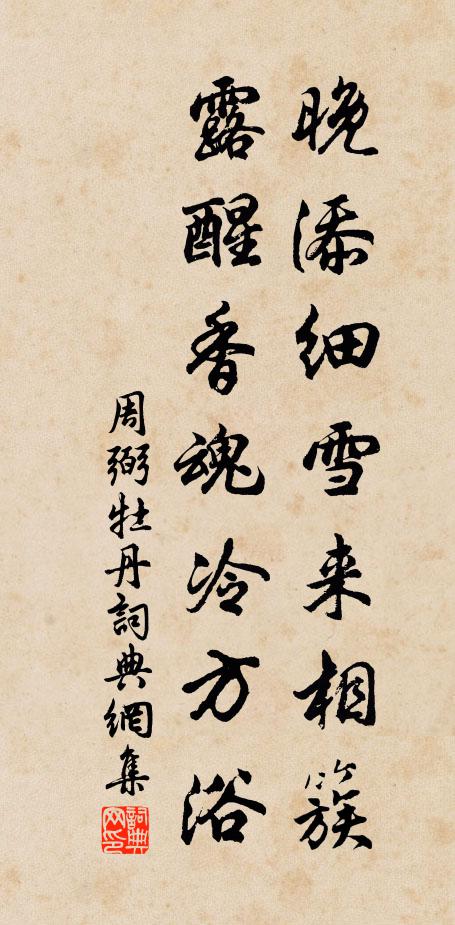 晚添细雪来相簇
露醒香魂冷方浴
周弼牡丹詞典網集
詞典网印